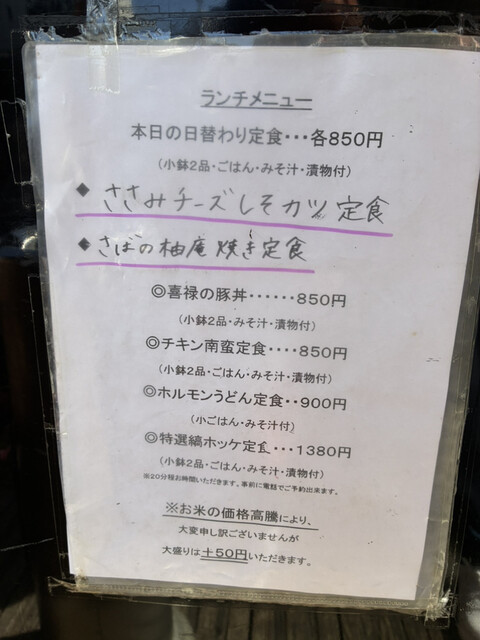 ランチメニュー
本日の日替わり定食･･･各850円
（小鉢2品・ごはん・みそ汁・漬物付）
◆ ささみチーズしそカツ定食
◆ さばの柚庵焼き定食
◎喜禄の豚丼･･････850円
（小鉢2品・みそ汁・漬物付）
◎チキン南蛮定食････850円
（小鉢2品・ごはん・みそ汁・漬物付）
◎ホルモンうどん定食･･900円
（小ごはん・みそ汁付）
◎特選縞ホッケ定食･･･1380円
（小鉢2品・ごはん・みそ汁・漬物付）
※20分程お時間いただきます。事前に電話でご予約出来ます。
※お米の価格高騰により、
大変申し訳ございませんが
大盛りは＋50円いただきます。